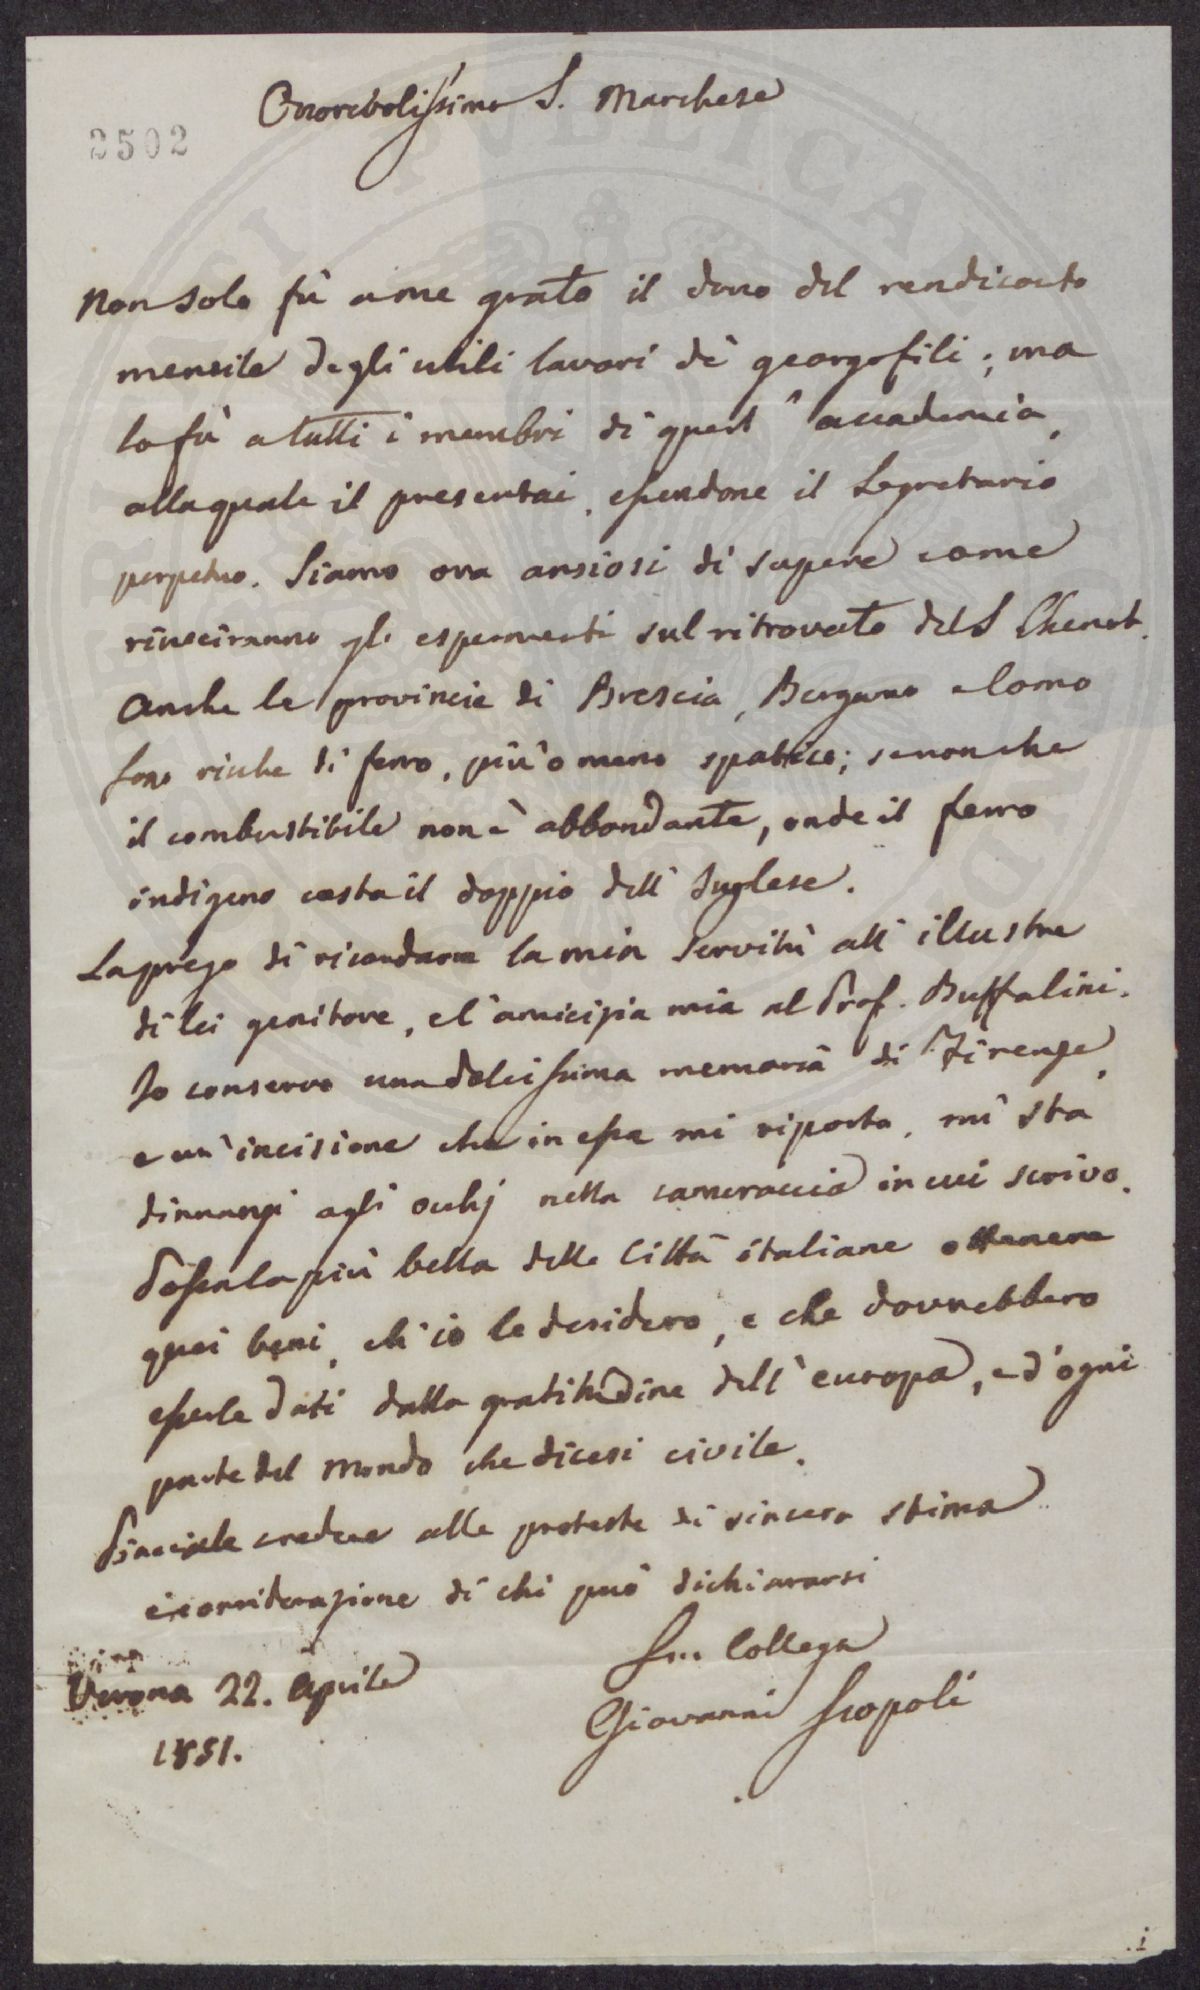 Onorevolissimo S. Marchese
2502
Non solo fù a me grato il dono del rendiconto
mensile degli utili lavori de' georgofili; ma
lo fù a tutti i membri di quest' accademia,
alla quale il presentai, essendone il Segretario
perpetuo. Siamo ora ansiosi di sapere come
riusciranno gli esperimenti sul ritrovato del S Chenot.
Anche le provincie di Brescia, Bergamo e Como
sono riche di ferro, più o meno spatico; senonche
il combustibile non è abbondante, onde il ferro
indigeno costa il doppio dell' Inglese.
La prego di ricordare la mia servitù all' illustre
di lei genitore, e l'amicizia mia al Prof. Buffalini.
Io conservo una dolcissima memoria di Firenze,
e un' incisione che in essa mi riporta, mi sta
dinnanzi agli occhj nella cameraccia in cui scrivo.
Possa la più bella delle Città italiane ottenere
quei beni, ch' io le desidero, e che dovrebbero
esserle dati dalla gratitudine dell' europa, e d'ogni
parte del Mondo che dicesi civile.
Piacciale credere alle proteste di sincera stima
e considerazione di chi può dichiararsi
Suo Collega
Verona 22. Aprile
Giovanni Scopoli
1851.